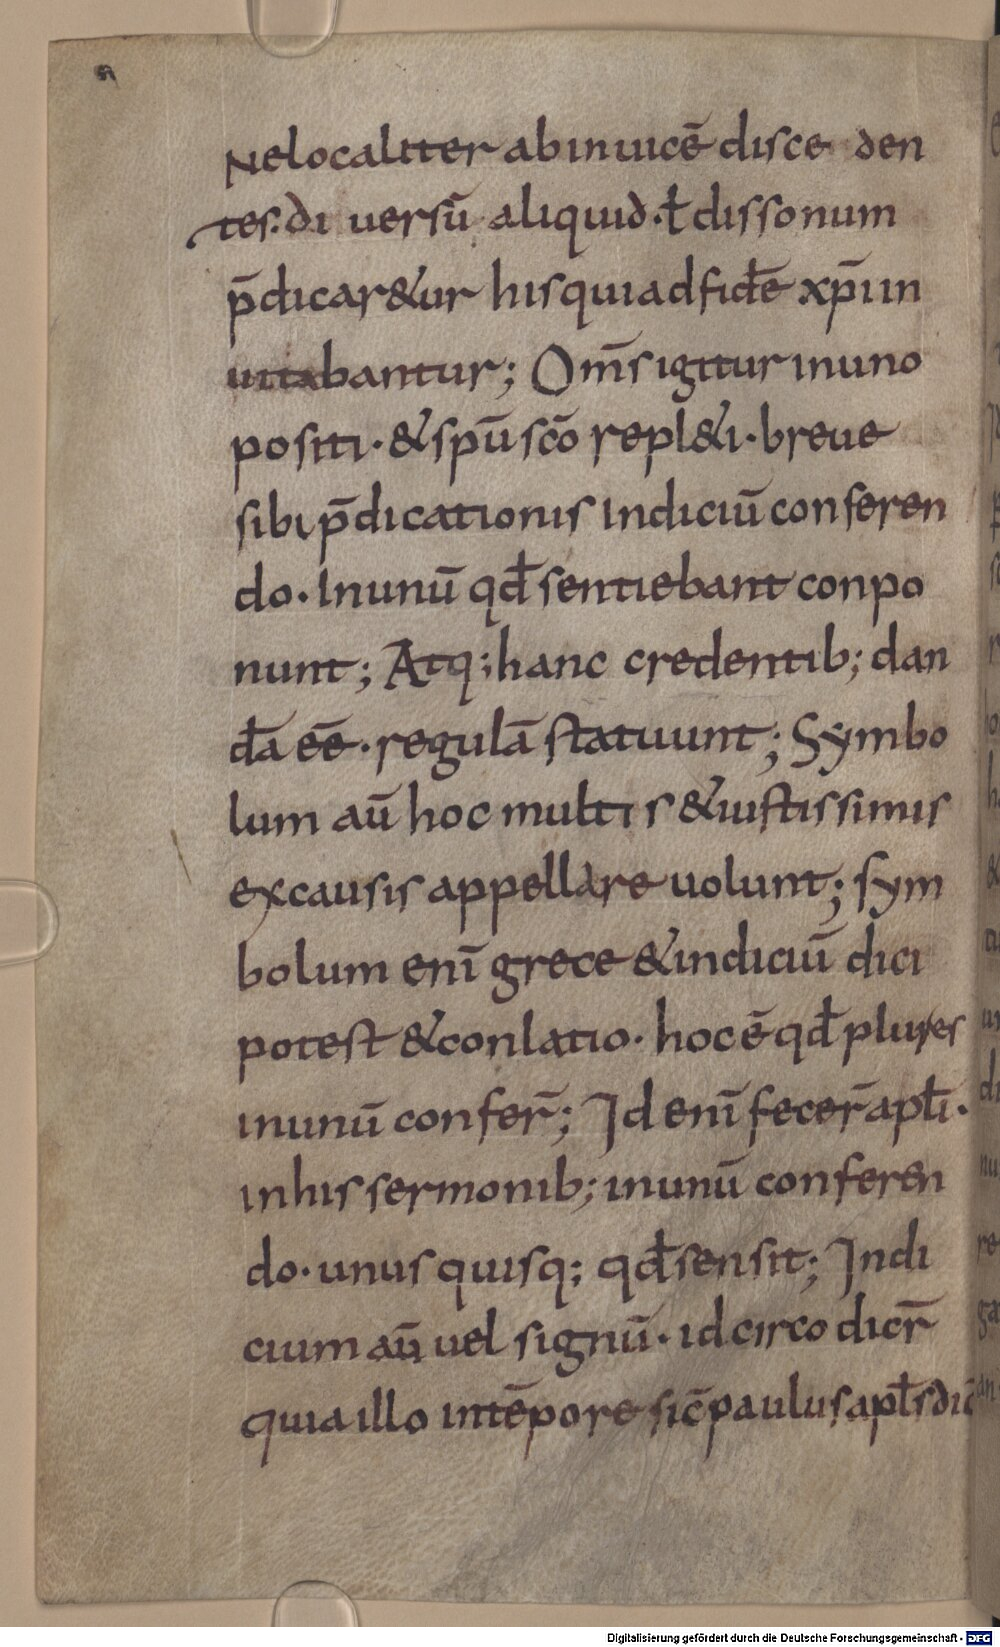 Ne localiter ab inuicē disceden
tes. diuersū aliquid. ł dissonum
p̄dicar&ur his qui ad fidē xp̄i in
uitabantur; Om̄s igitur in uno
positi. & sp̄u sc̄o repl&i. breue
sibi p̄dicationis indiciū conferen
do. In unū qđ sentiebant conpo
nunt; Atq; hanc credentib; dan
dā eē. regulā statuunt; Symbo
lum aū hoc multis & iustissimis
ex causis appellare uolunt; sym
bolum enī grece & indiciū dici
potest & conlatio. hoc ē qđ plures
in unū confer̄; Id enī fecer̄ apłi.
in his sermonib; in unū conferen
do. unus quisq; qđ sensit; Indi
cium aū uel signū. id circo dicr̄
quia illo in tēpore sic̄ paulus apłs dic̄
Digitalisierung gefördert durch die Deutsche Forschungsgemeinschaft - DFG